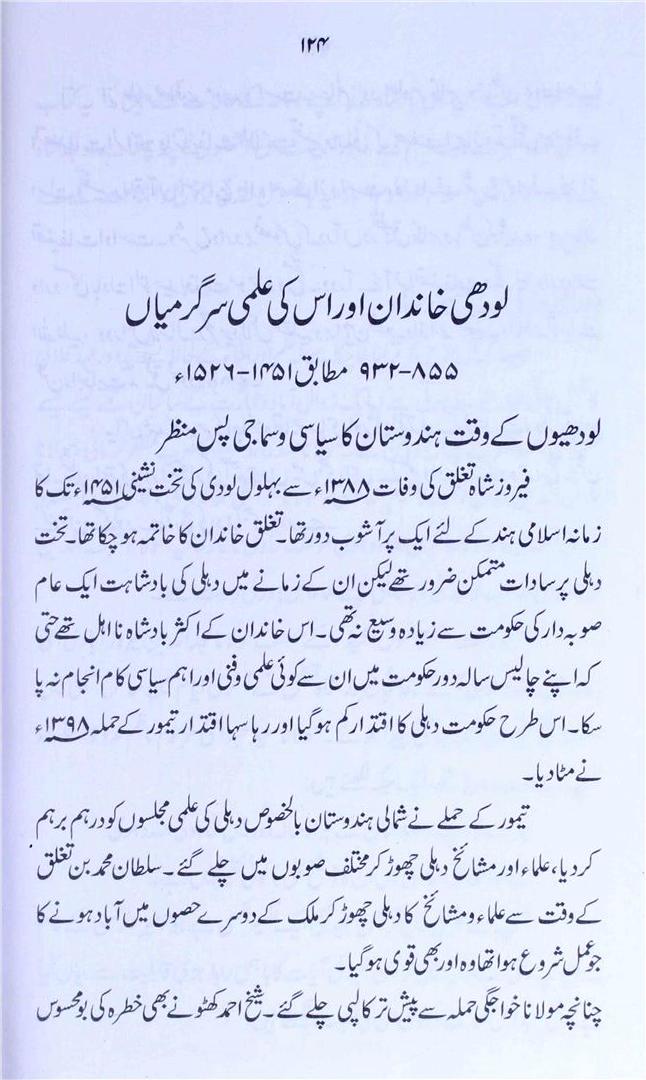 ۱۲۴
لودھی خاندان اور اس کی علمی سرگرمیاں
۸۵۵-۹۳۲ مطابق ۱۴۵۱-۱۵۲۶ء
لودھیوں کے وقت ہندوستان کا سیاسی وسماجی پس منظر
فیروز شاہ تغلق کی وفات ۱۳۸۸ء سے بہلول لودی کی تخت نشینی ۱۴۵۱ء تک کا
زمانہ اسلامی ہند کے لئے ایک پر آشوب دور تھا۔ تغلق خاندان کا خاتمہ ہو چکا تھا۔ تخت
دہلی پر سادات متمکن ضرور تھے لیکن ان کے زمانے میں دہلی کی بادشاہت ایک عام
صوبہ دار کی حکومت سے زیادہ وسیع نہ تھی۔ اس خاندان کے اکثر بادشاہ نا اہل تھے حتی
کہ اپنے چالیس سالہ دور حکومت میں ان سے کوئی علمی و فنی اور اہم سیاسی کام انجام نہ پا
سکا۔ اس طرح حکومت دہلی کا اقتدار کم ہو گیا اور رہا سہا اقتدار تیمور کے حملہ ۱۳۹۸ء
نے مٹا دیا۔
تیمور کے حملے نے شمالی ہندوستان بالخصوص دہلی کی علمی مجلسوں کو درہم برہم
کر دیا، علماء اور مشائخ دہلی چھوڑ کر مختلف صوبوں میں چلے گئے۔ سلطان محمد بن تغلق
کے وقت سے علماء و مشائخ کا دہلی چھوڑ کر ملک کے دوسرے حصوں میں آباد ہونے کا
جو عمل شروع ہوا تھا وہ اور بھی قوی ہو گیا۔
چنانچہ مولانا خواجگی حملہ سے پیش تر کالپی چلے گئے۔ شیخ احمد کھٹو نے بھی خطرہ کی بو محسوس